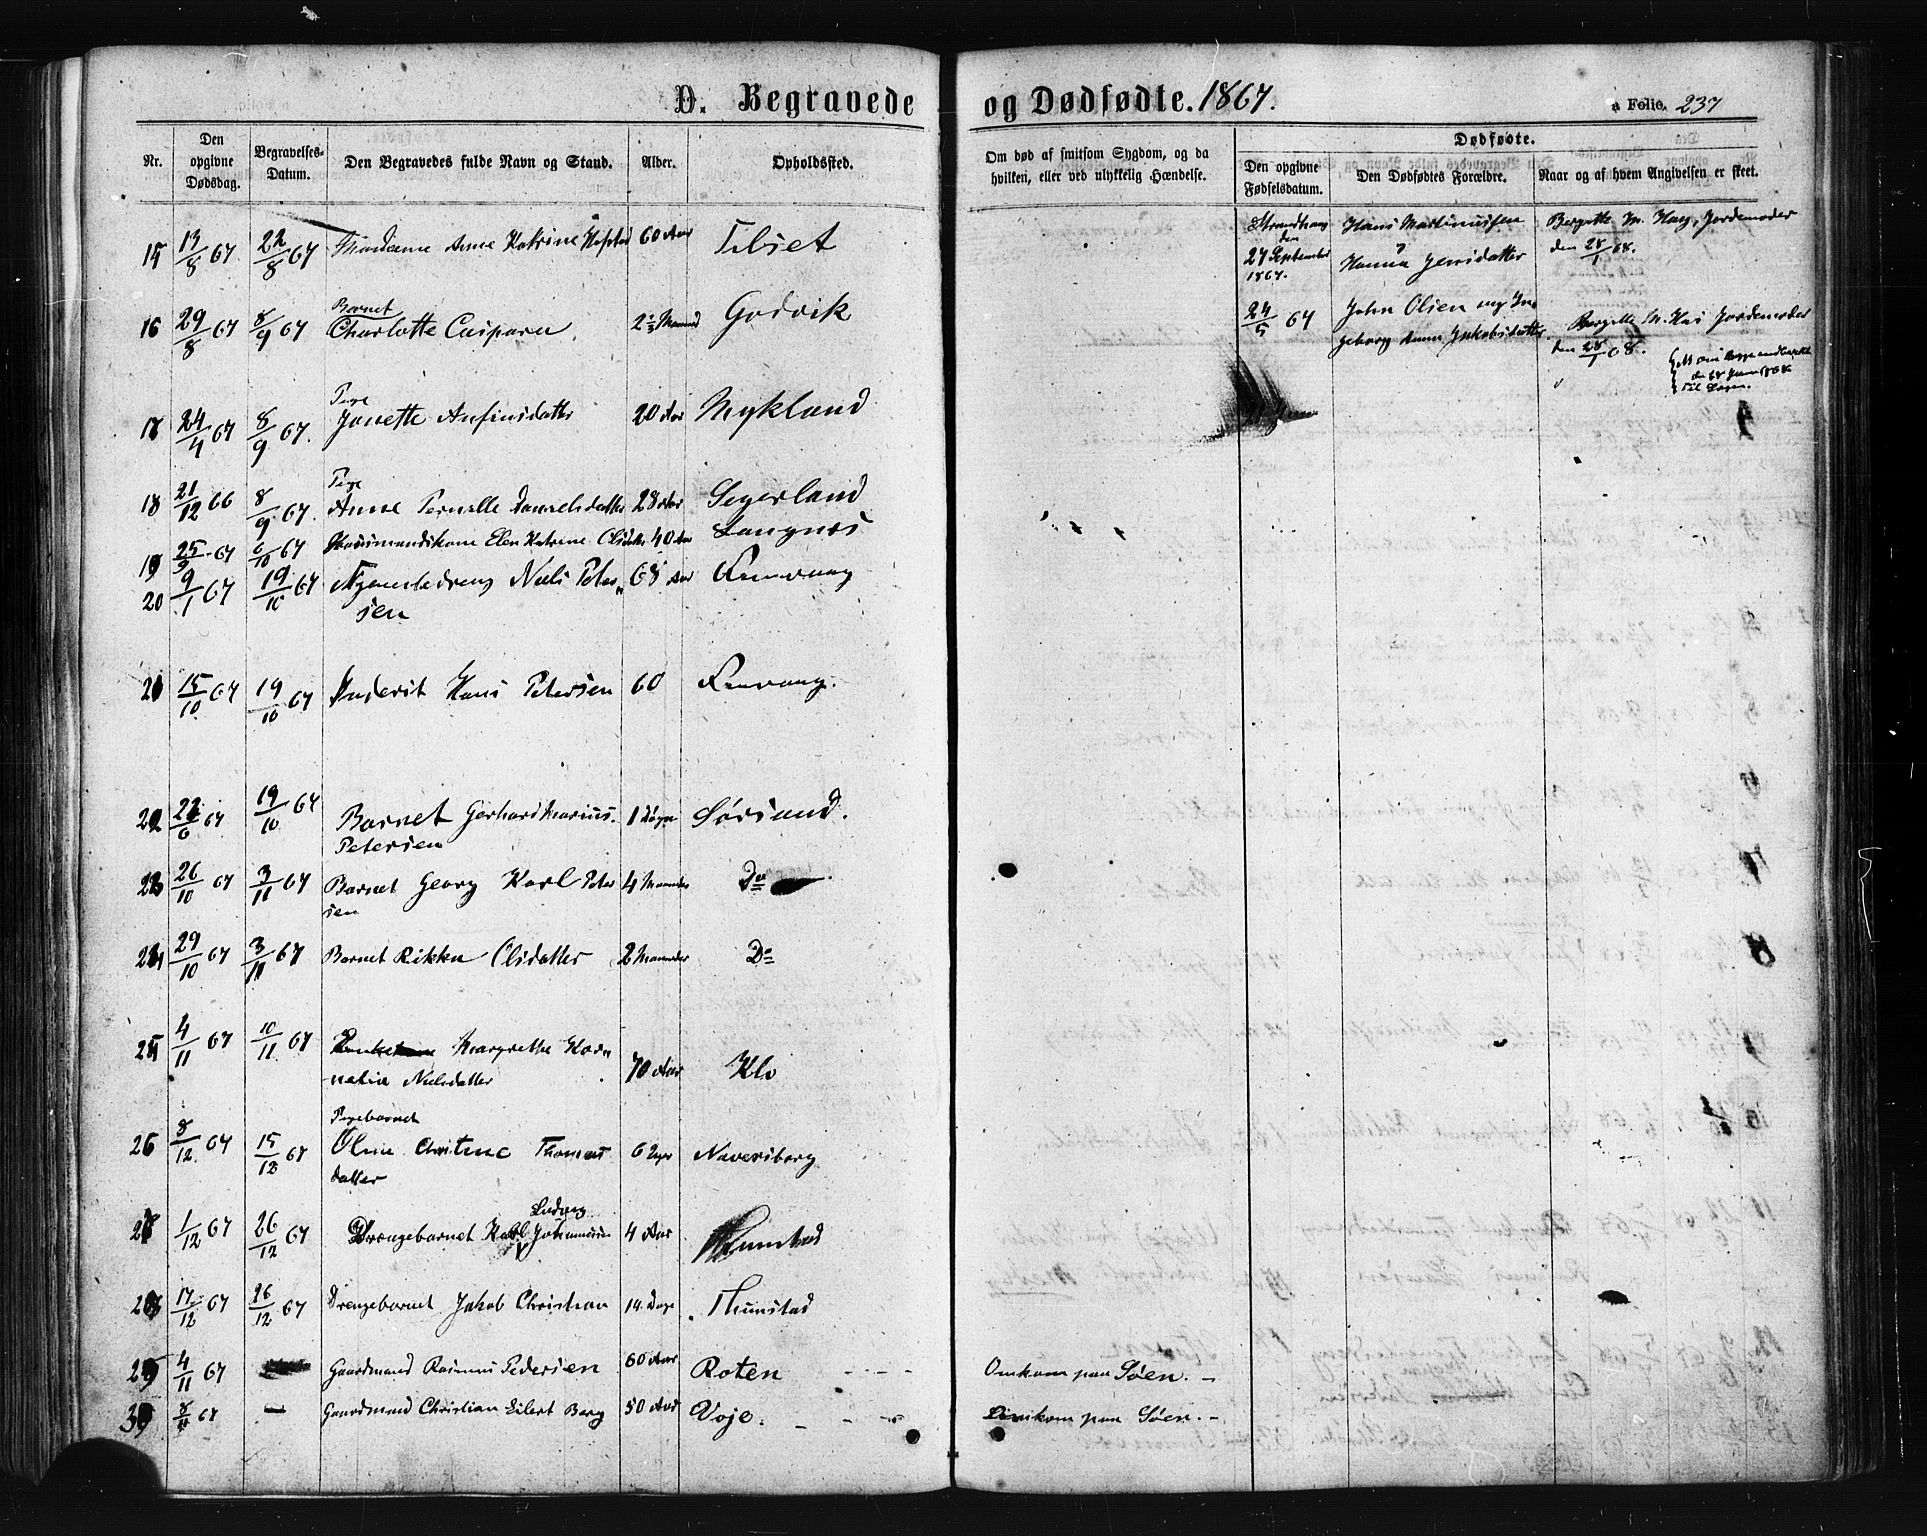 D. Begravede og Dødfødte. 1867.
a Folio. 237
Nr.
Den opgivne Dødsdag.
Begravelses-Datum.
Den Begravedes fulde Navn og Stand.
Alder.
Opholdssted.
Om død af smitsom Sygdom, og da hvilken, eller ved ulykkelig Hændelse.
Dødfødte.
Den opgivne Fødselsdatum.
Den Dødfødtes Forældre.
Naar og af hvem Angivelsen er skeet.
15 13/8 67 22/8 67 Madame Anne Katrine 60 Aar Tilset
16 29/8 67 8/9 67 Barnet
Charlotte Caspara 2 1/2 Maaned Godvik
17 24/4 67 8/9 67. Pige
Janette Anfinsdatter 20 Aar Mykland
18 21/12 66 8/9 67. Pige
Anne Pernille Danielsdatter 28 Aar Segerland
19 25/9 67 6/10 67 Huusmandskone Elen Katrine Olsdatter 40 Aar Langnes
20 9/1 67 19/10 67 Niels Peter„ 68 Aar
sen
21 15/10 67 19/10 67 Inderst Hans Petersen 60
22 6 67 19/10 67 Barnet Gerhard Marius 1 Døgn Sørsand.
Petersen
23 26/10 67 3/11 67 Barnet Georg Karl Peter 4 Maaneder Do
sen
24 29/10 67 3/11 67 Barnet Rikka Olsdatter 2 Maaneder Do
25 4/11 67 10/11 67 Margrethe Kor„
nelia Nielsdatter 70 Aar Klo
26 8/12 67 15/12 67 Pigebarnet
Oline Christine Thomas 6 Uger Naversborg
datter
27 1/12 67 26/12 67 Drengebarnet Karl Ludvig Johannesen 4 Aar Thunstad
28 17/12 67 26/12 67 Drengebarnet Jakob Christian 14. Dage Thunstad
29 4/11 67 — Gaardmand Rasmus Pedersen 60 Aar Roten - - - Omkom paa Søen. -
30 8/11 67 — Gaardmand Christian Eilert Berg 50 Aar Voje. - - - Omkom paa Søen. -
Strandhaug
den
27 September
1867.
Hans Martinussen
?
Hanna Jensdatter
Bergette M. Hay, Jordemoder
den 28/1 68.
24/5 67
John Olsen og In
geborg Anna Jakobsdatter.
Bergette M. Hay Jordemoder
den 28/1 68.